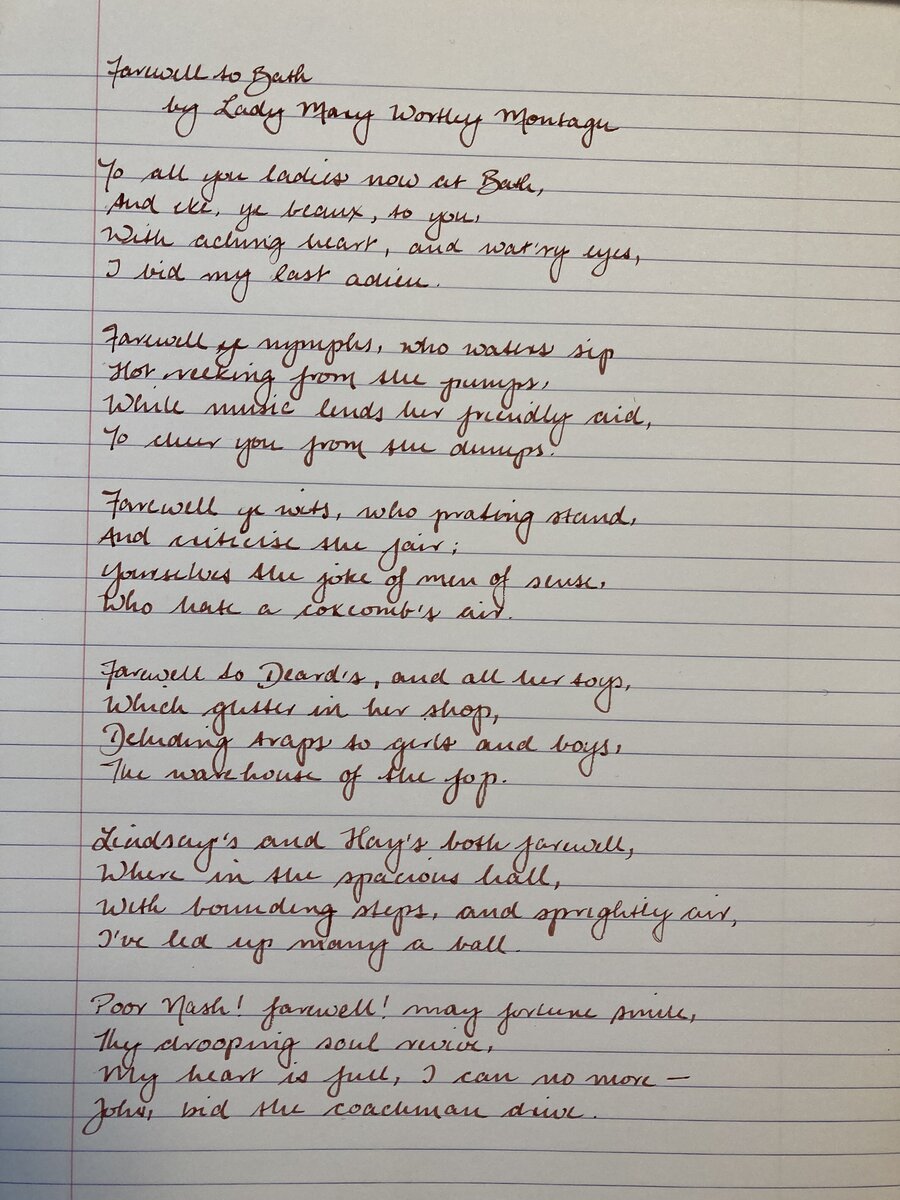 Farewell to Bath
by Lady Mary Wortley Montagu
To all you ladies now at Bath,
And eke, ye beaux, to you,
With aching heart, and wat'ry eyes,
I bid my last adieu.
Farewell ye nymphs, who waters sip
Hot reeking from the pumps,
While music lends her friendly aid,
To cheer you from the dumps.
Farewell ye wits, who prating stand,
And criticise the fair;
Yourselves the joke of men of sense,
Who hate a coxcomb's air.
Farewell to Deard's, and all her toys,
Which glitter in her shop,
Deluding traps to girls and boys,
The warehouse of the fop.
Lindsay's and Hay's both farewell,
Where in the spacious hall,
With bounding steps, and sprightly air,
I've led up many a ball.
Poor Nash! farewell! may fortune smile,
Thy drooping soul revive,
My heart is full, I can no more —
John, bid the coachman drive.